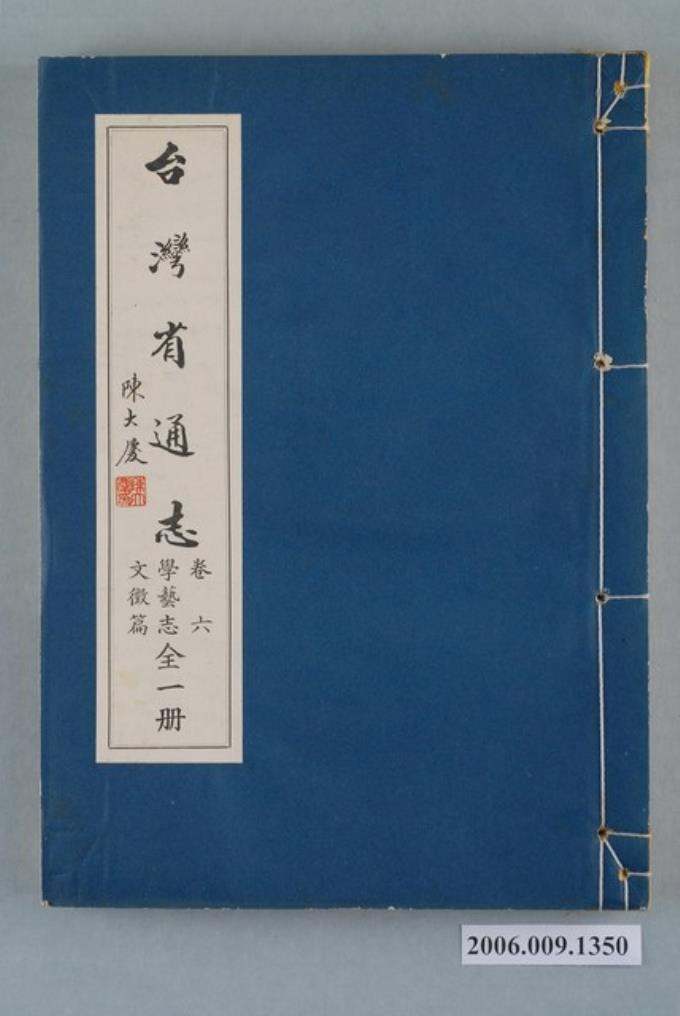 台灣省通志
卷六
學藝志
文徵篇
全一册
陳大慶
2006.009.1350